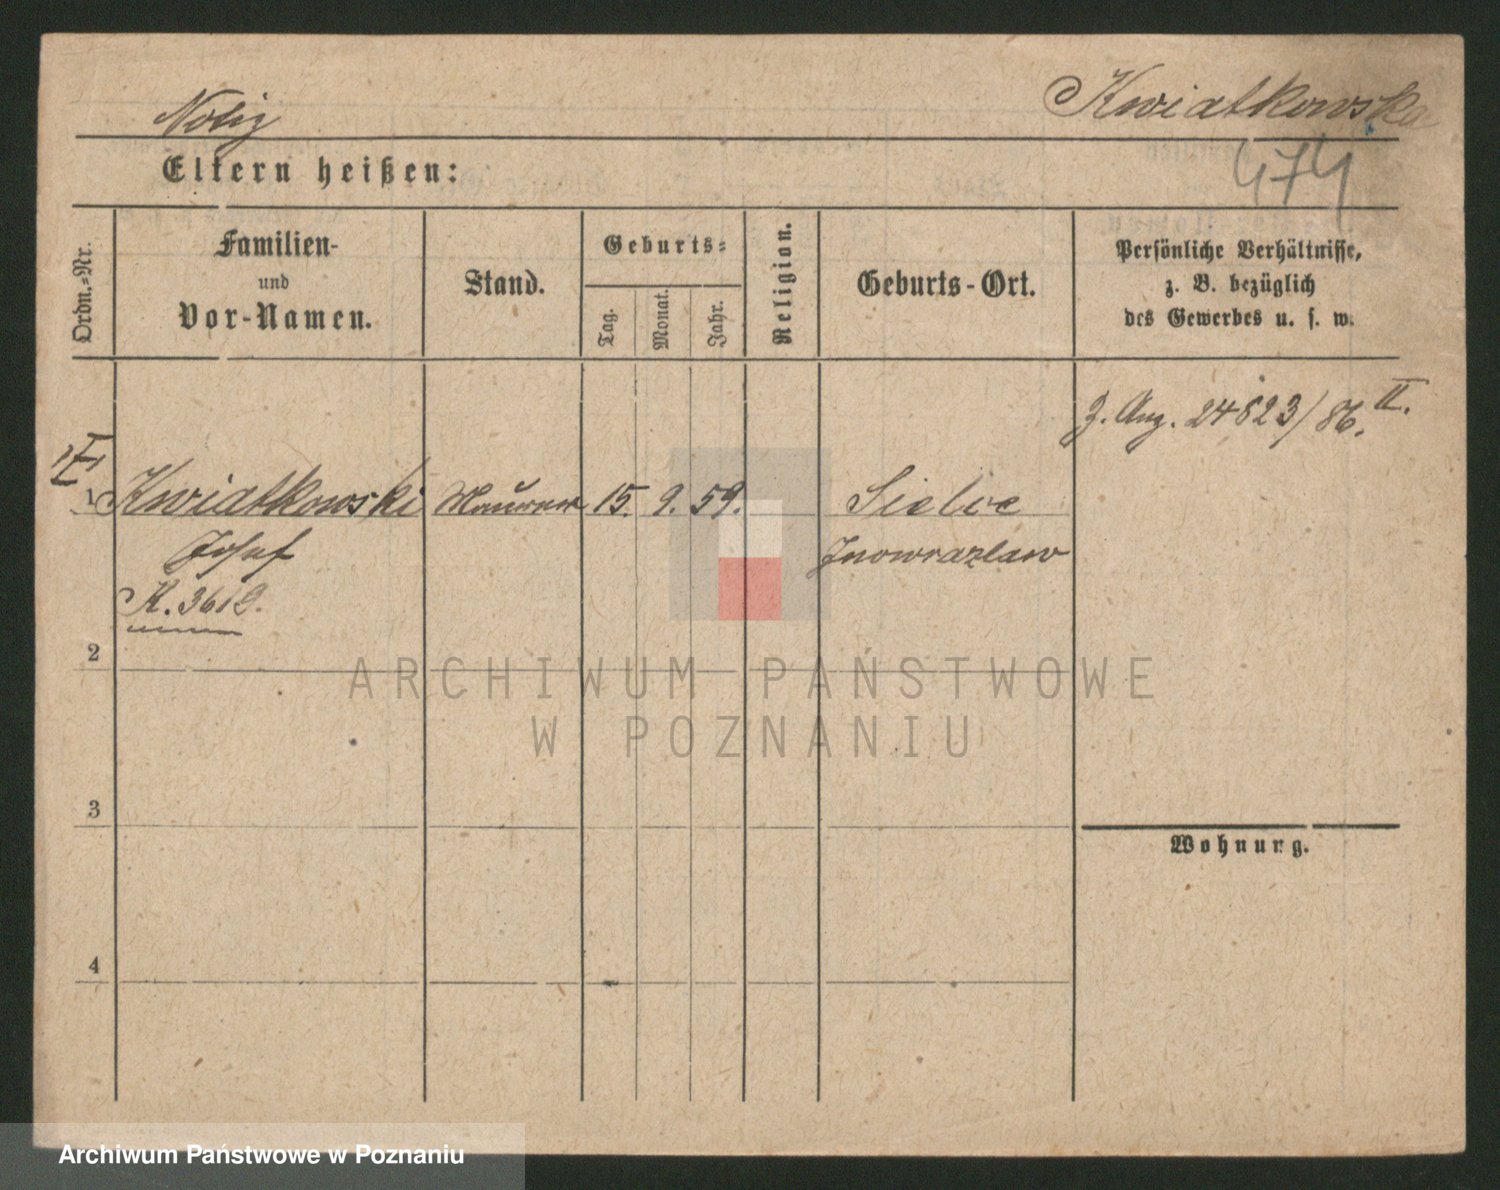 Notiz
Kwiatkowska
474
Eltern heißen:
Ordn.-Nr.
Familien-
und
Vor-Namen.
Stand.
Geburts-
Tag.
Monat.
Jahr.
Religion.
Geburts-Ort.
Persönliche Verhältnisse,
z. B. bezüglich
des Gewerbes u. s. w.
Z. Anz. 24823/86. II.
1 Kwiatkowski Maurer 15. 9. 59. Sielce
Josef Inowrazlaw
K. 3612.
2
3
4
Wohnung.
ARCHIWUM PAŃSTWOWE
W POZNANIU
Archiwum Państwowe w Poznaniu